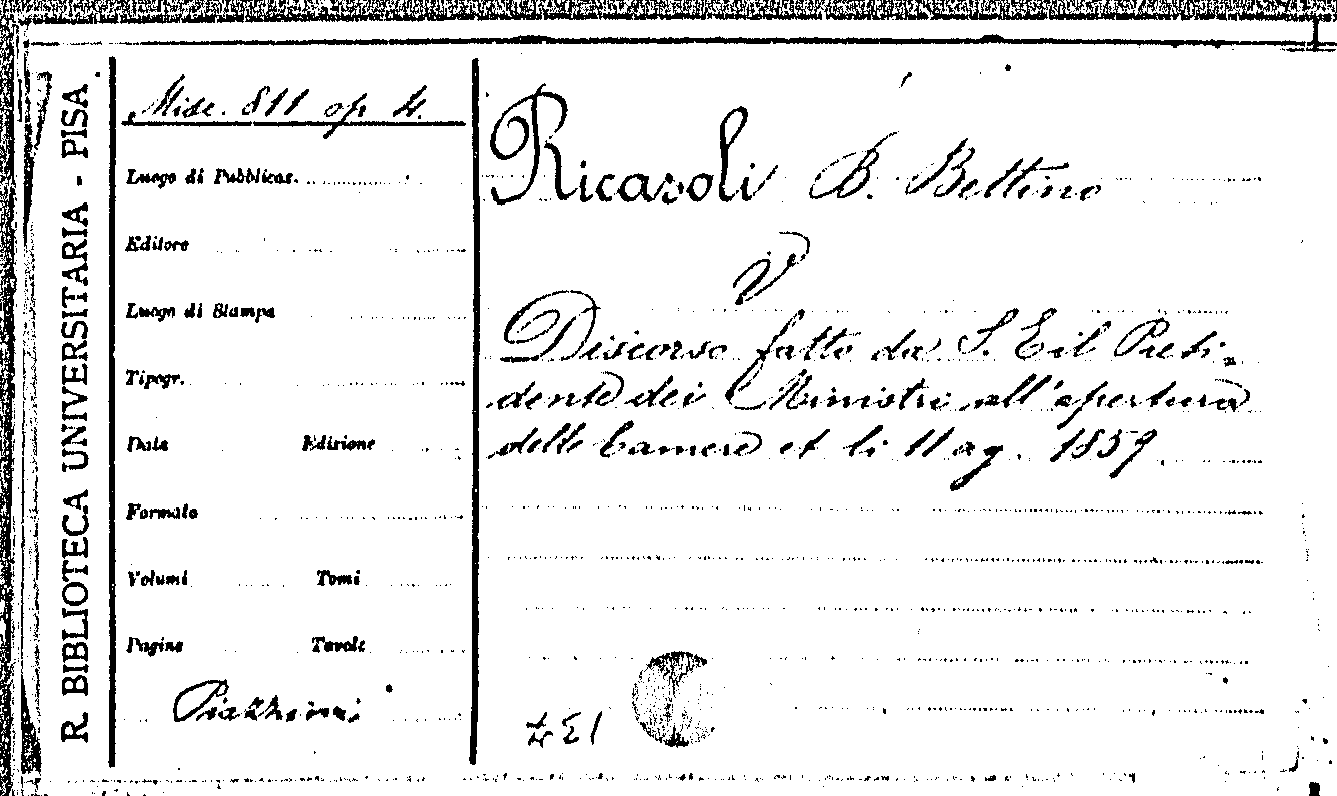 R. BIBLIOTECA UNIVERSITARIA - PISA
Misc. 811 op 4.
Luogo di Pubblicaz.
Editore
Luogo di Stampa
Tipogr.
Data Edizione
Formato
Volumi Tomi
Pagine Tavole
Piazzini
Ricasoli B. Bettino
V
Discorso fatto da S. E il Presi-
dente dei Ministri all'apertura
delle Camere et li 11 ag. 1859